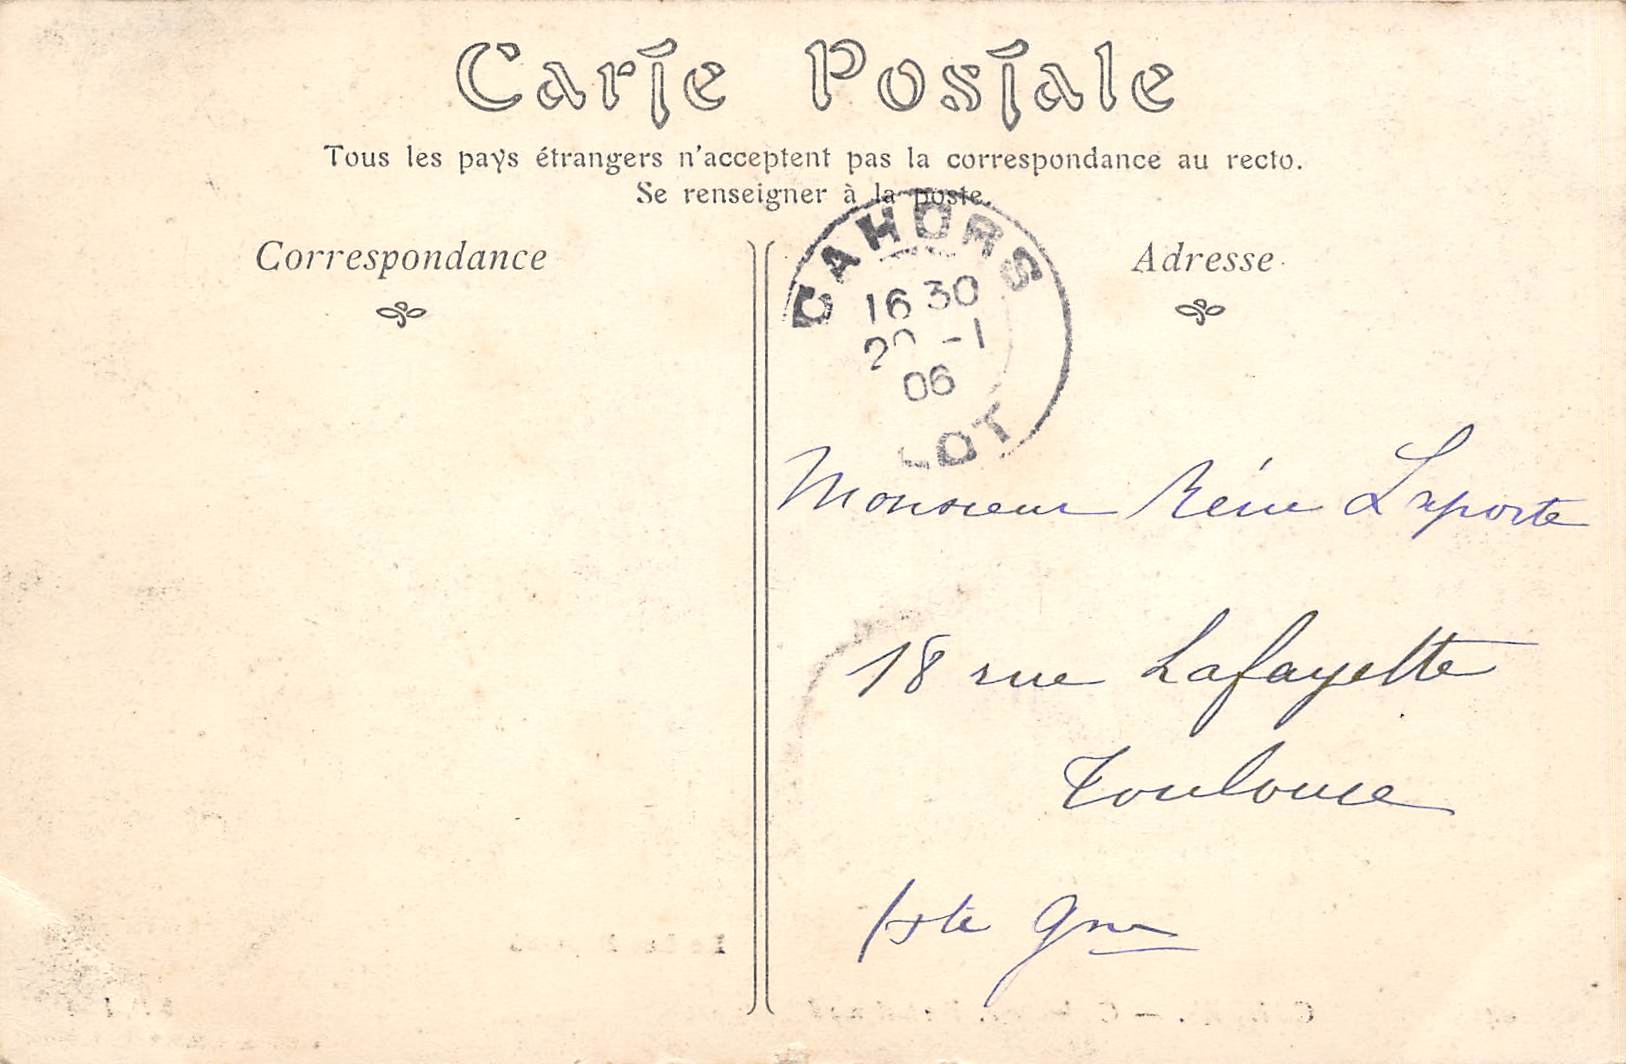 Carte Postale
Tous les pays étrangers n'acceptent pas la correspondance au recto.
Se renseigner à la poste.
Correspondance
Adresse
CAHORS
16 30
-1
06
LOT
Monsieur Laporte
18 rue Lafayette
Toulouse
Hte Gne